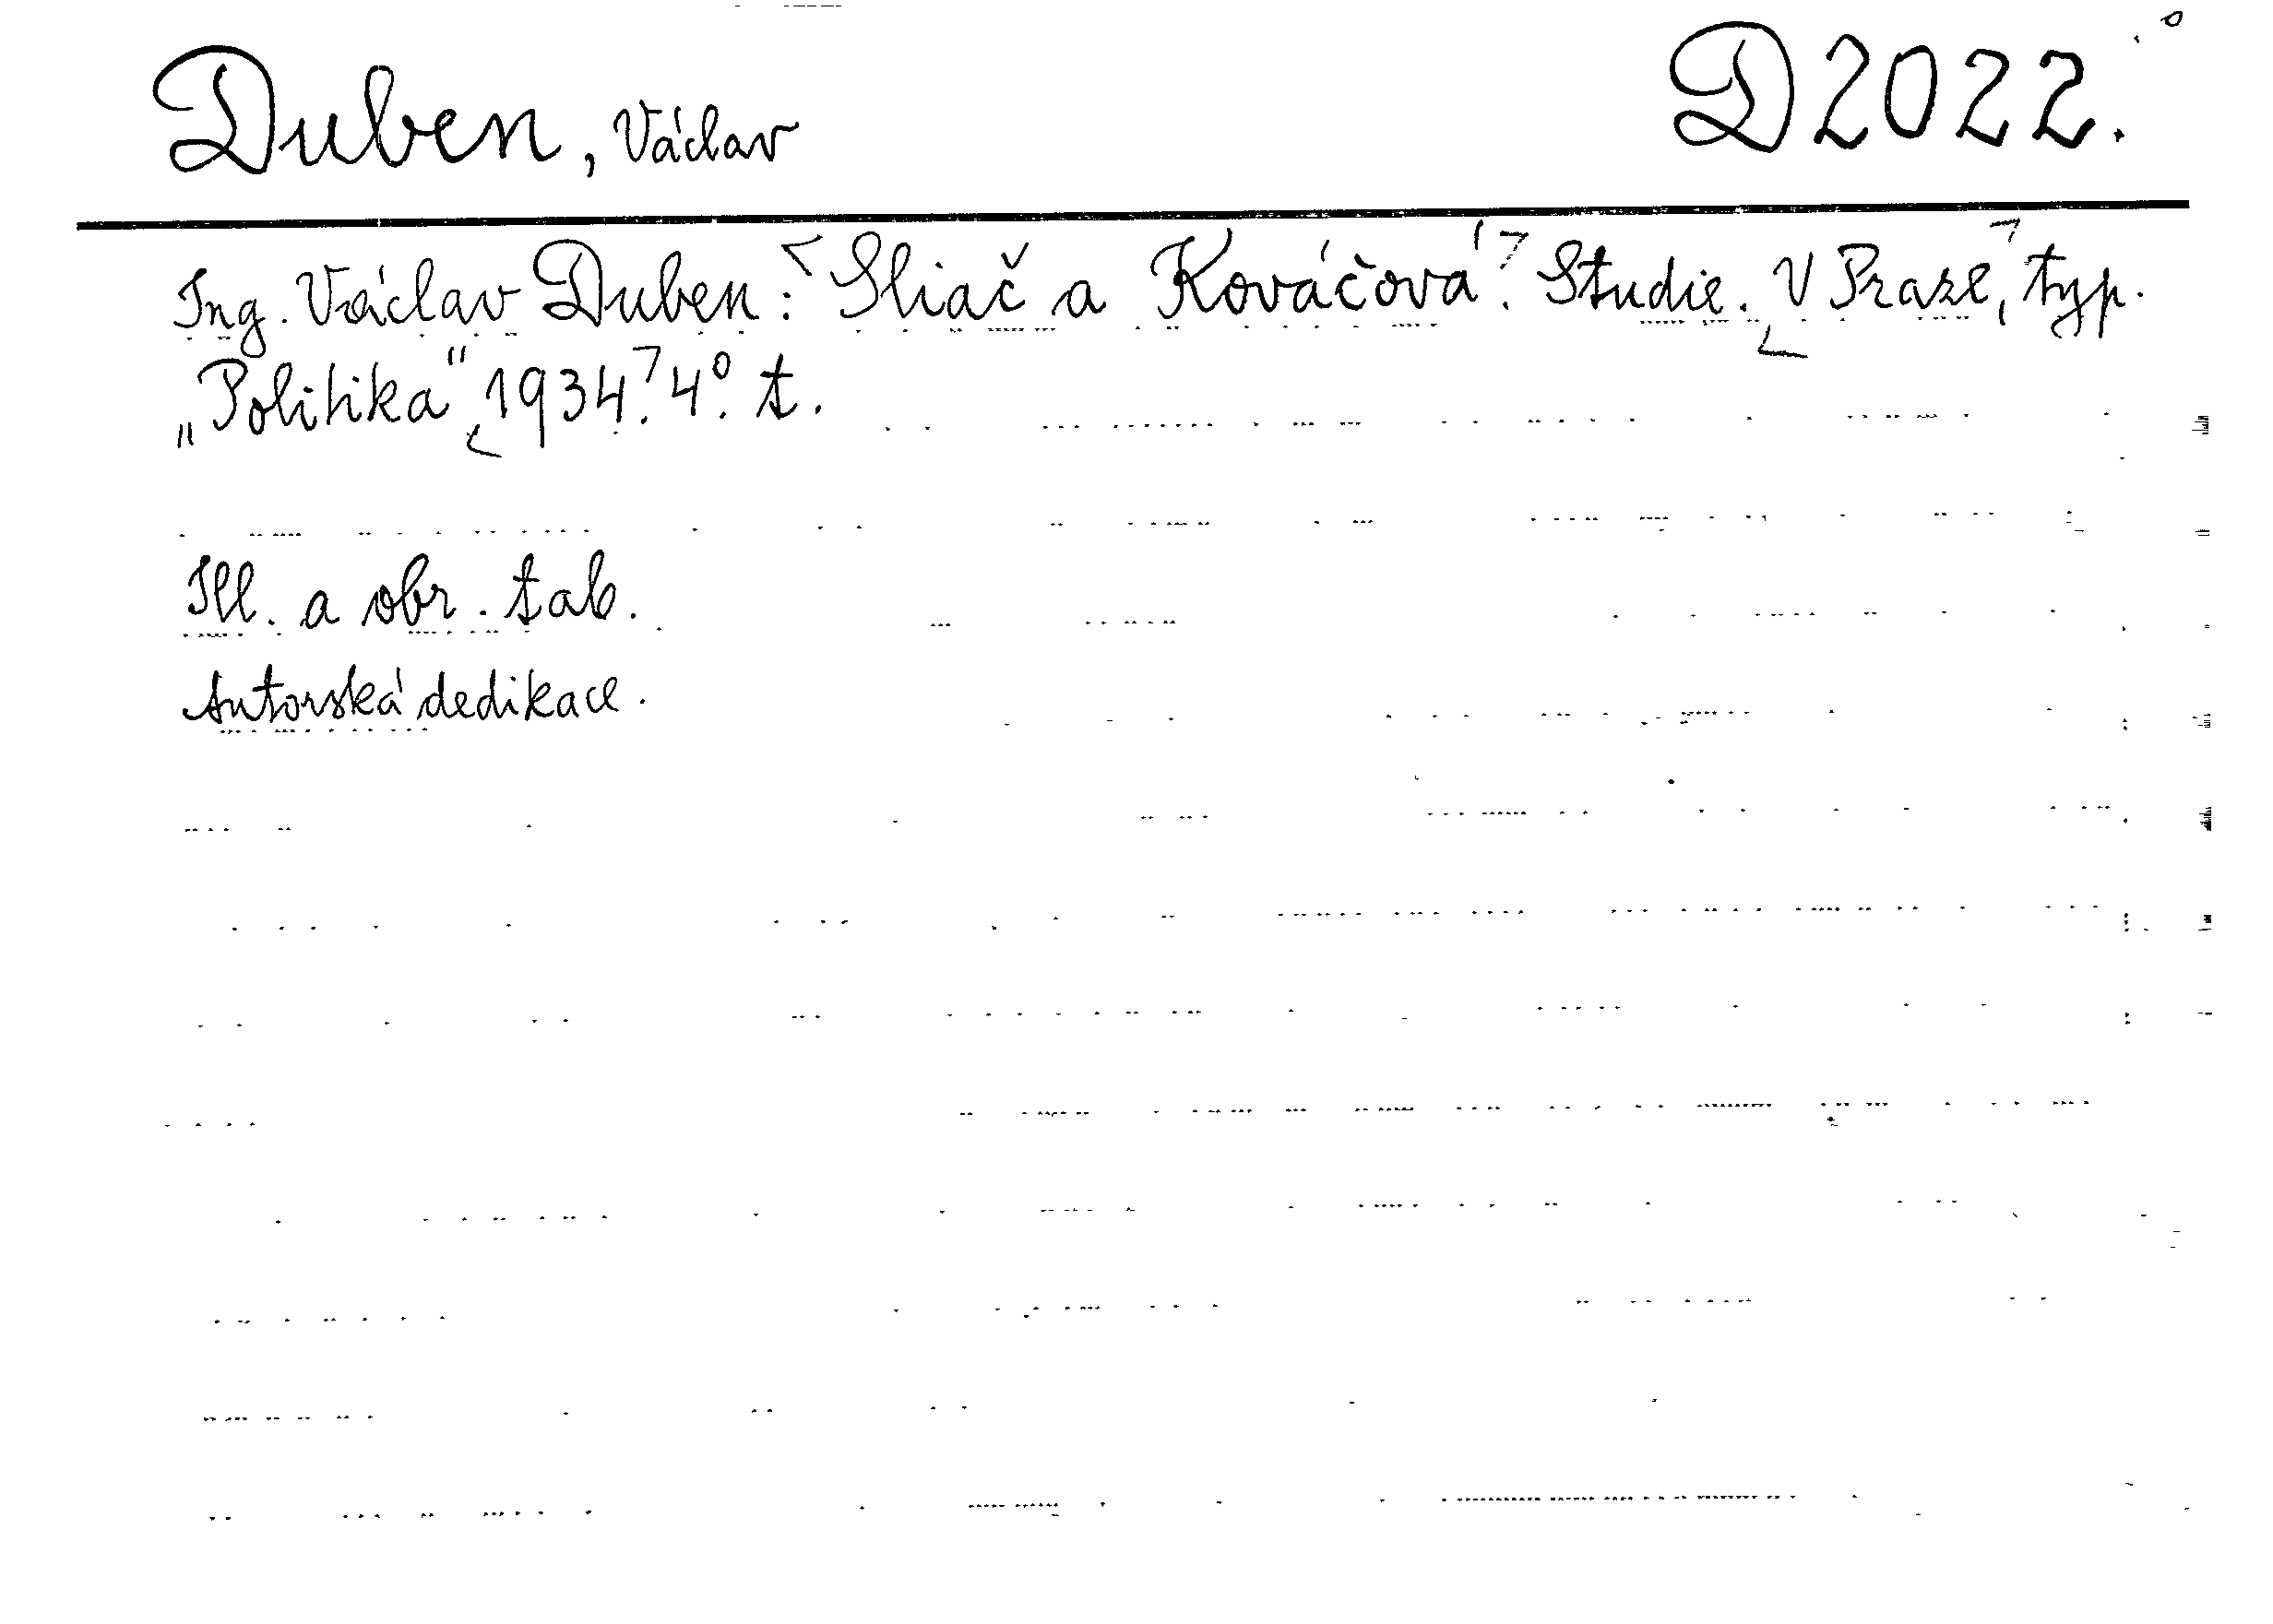 Duben, Václav D 2022.
Ing. Václav Duben: Sliač a Kováčová. Studie. V Praze, typ.
„Politika“ 1934. 4°. t.
Ill. a obr. tab.
Autorská dedikace.